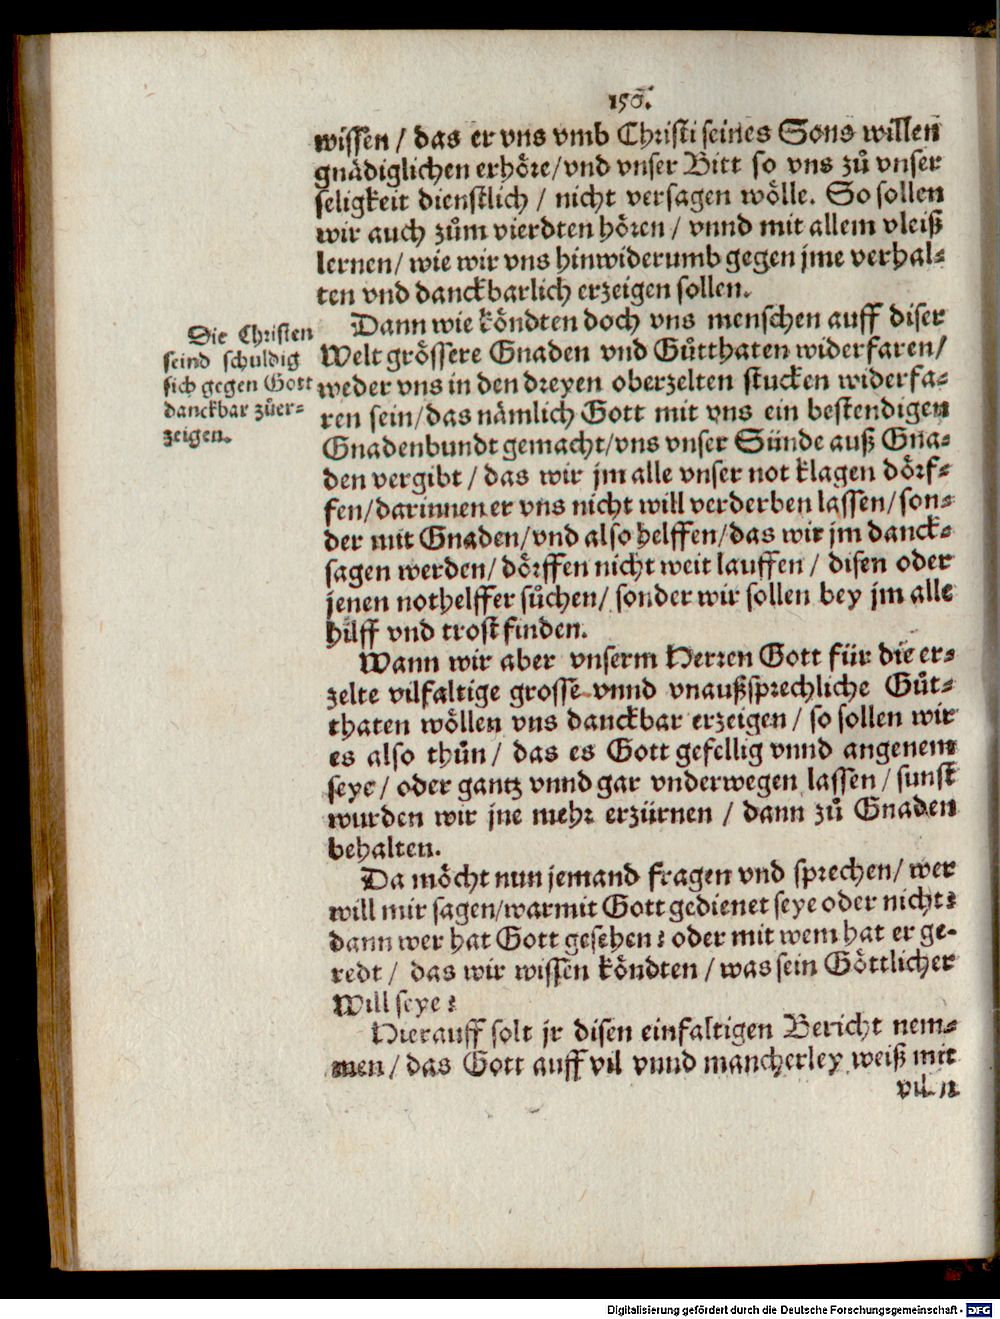 156.
wissen / das er vns vmb Christi seines Sons willen
gnädiglichen erhöre / vnd vnser Bitt so vns zů vnser
seligkeit dienstlich / nicht versagen wölle. So sollen
wir auch zům vierdten hören / vnnd mit allem vleiß
lernen / wie wir vns hinwiderumb gegen jme verhal⸗
ten vnd danckbarlich erzeigen sollen.
Die Christen
seind schuldig
sich gegen Gott
danckbar zůer⸗
zeigen.
Dann wie köndten doch vns menschen auff diser
Welt grössere Gnaden vnd Gůtthaten widerfaren /
weder vns in den dreyen oberzelten stucken widerfa⸗
ren sein / das nämlich Gott mit vns ein bestendigen
Gnadenbundt gemacht / vns vnser Sünde auß Gna⸗
den vergibt / das wir jm alle vnser not klagen dörf⸗
fen / darinnen er vns nicht will verderben lassen / son⸗
der mit Gnaden / vnd also helffen / das wir jm danck⸗
sagen werden / dörffen nicht weit lauffen / disen oder
jenen nothelffer sůchen / sonder wir sollen bey jm alle
hilff vnd trost finden.
Wann wir aber vnserm Herren Gott für die er⸗
zelte vilfaltige grosse vnnd vnaußsprechliche Gůt⸗
thaten wöllen vns danckbar erzeigen / so sollen wir
es also thůn / das es Gott gefellig vnnd angenem
seye / oder gantz vnnd gar vnderwegen lassen / sunst
wurden wir jne mehr erzürnen / dann zů Gnaden
behalten.
Da möcht nun jemand fragen vnd sprechen / wer
will mir sagen / warmit Gott gedienet seye oder nicht?
dann wer hat Gott gesehen? oder mit wem hat er ge⸗
redt / das wir wissen köndten / was sein Göttlicher
Will seye?
Hierauff solt jr disen einfaltigen Bericht nem⸗
men / das Gott auff vil vnnd mancherley weiß mit
Digitalisierung gefördert durch die Deutsche Forschungsgemeinschaft - DFG